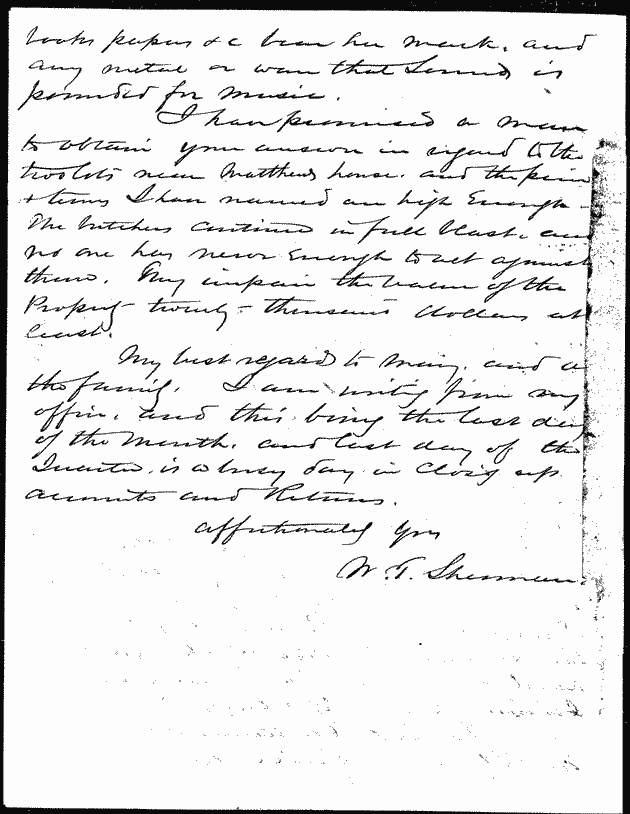 books papers &c bear her mark, and
any metal or ware that sounds is
pounded for music.
I have promised a man
to obtain your answer in regard to the
two lots near Matthews house, and the price
& terms I have named are high Enough -
The butchers continue in full blast, and
no one has nerve Enough to act against
them. They impair the value of the
Property - twenty - thousand dollars at
least.
My best regards to Mary, and a
the family. I am writing from my
office, and this being the last day
of the Month, and last day of the
Quarter, is a busy day in closing up
accounts and Returns.
affectionately Yrs
W. T. Sherman.